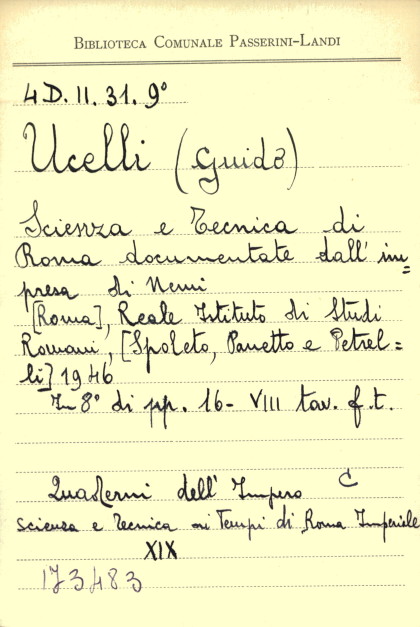 BIBLIOTECA COMUNALE PASSERINI-LANDI
4 D. II. 31. 9°
Ucelli (Guido)
Scienza e Tecnica di
Roma documentate dall' im=
presa di Nemi
[Roma], Reale Istituto di Studi
Romani, [Spoleto, Panetto e Petrel=
li] 1946
In 8° di pp. 16 - VIII tav. f. t.
Quaderni dell' Impero C
Scienza e Tecnica ai Tempi di Roma Imperiale
XIX
173483